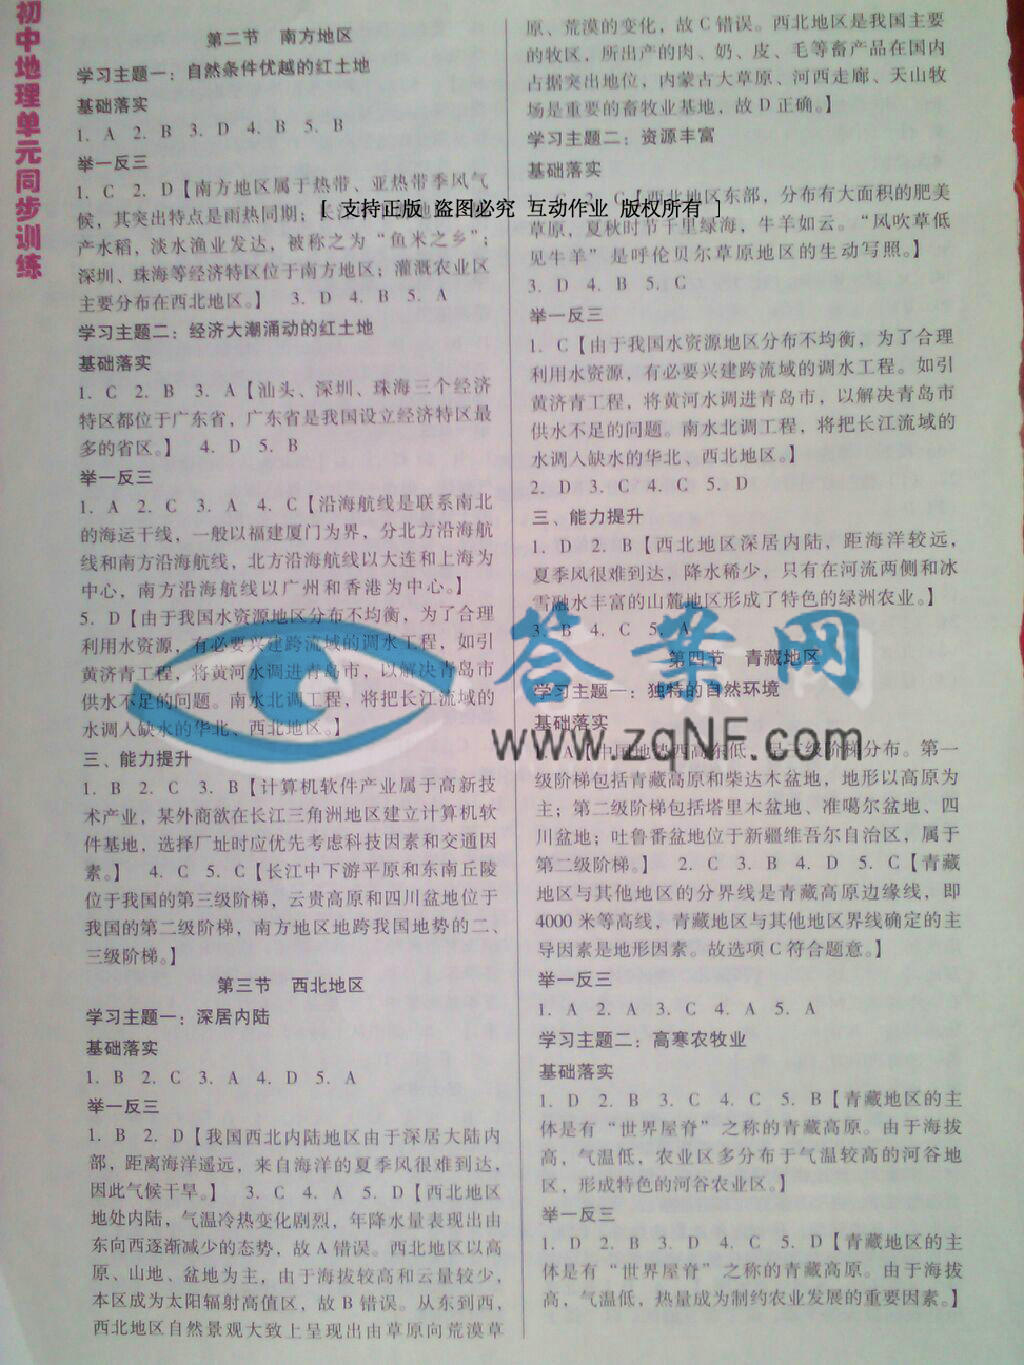 初中地理单元同步训练
第二节 南方地区
学习主题一：自然条件优越的红土地
基础落实
1. A 2. B 3. D 4. B 5. B
举一反三
1. C 2. D【南方地区属于热带、亚热带季风气
候，其突出特点是雨热同期；
产水稻，淡水渔业发达，被称之为“鱼米之乡”；
深圳、珠海等经济特区位于南方地区；灌溉农业区
主要分布在西北地区。】 3. D 4. B 5. A
学习主题二：经济大潮涌动的红土地
基础落实
1. C 2. B 3. A【汕头、深圳、珠海三个经济
特区都位于广东省，广东省是我国设立经济特区最
多的省区。】 4. D 5. B
举一反三
1. A 2. C 3. A 4. C【沿海航线是联系南北
的海运干线，一般以福建厦门为界，分北方沿海航
线和南方沿海航线，北方沿海航线以大连和上海为
中心，南方沿海航线以广州和香港为中心。】
5. D【由于我国水资源地区分布不均衡，为了合理
利用水资源，有必要兴建跨流域的调水工程，如引
黄济青工程，将黄河水调进青岛市，以解决青岛市
供水不足的问题。南水北调工程，将把长江流域的
水调入缺水的华北、西北地区。】
三、能力提升
1. B 2. C 3. B【计算机软件产业属于高新技
术产业，某外商欲在长江三角洲地区建立计算机软
件基地，选择厂址时应优先考虑科技因素和交通因
素。】 4. C 5. C【长江中下游平原和东南丘陵
位于我国的第三级阶梯，云贵高原和四川盆地位于
我国的第二级阶梯，南方地区地跨我国地势的二、
三级阶梯。】
第三节 西北地区
学习主题一：深居内陆
基础落实
1. B 2. C 3. A 4. D 5. A
举一反三
1. B 2. D【我国西北内陆地区由于深居大陆内
部，距离海洋遥远，来自海洋的夏季风很难到达，
因此气候干旱。】 3. C 4. A 5. D【西北地区
地处内陆，气温冷热变化剧烈，年降水量表现出由
东向西逐渐减少的态势，故 A 错误。西北地区以高
原、山地、盆地为主，由于海拔较高和云量较少，
本区成为太阳辐射高值区，故 B 错误。从东到西，
西北地区自然景观大致上呈现出由草原向荒漠草
原、荒漠的变化，故 C 错误。西北地区是我国主要
的牧区，所出产的肉、奶、皮、毛等畜产品在国内
占据突出地位，内蒙古大草原、河西走廊、天山牧
场是重要的畜牧业基地，故 D 正确。】
学习主题二：资源丰富
基础落实
西北地区东部，分布有大面积的肥美
草原，夏秋时节千里绿海，牛羊如云。“风吹草低
见牛羊”是呼伦贝尔草原地区的生动写照。】
3. D 4. B 5. C
举一反三
1. C【由于我国水资源地区分布不均衡，为了合理
利用水资源，有必要兴建跨流域的调水工程。如引
黄济青工程，将黄河水调进青岛市，以解决青岛市
供水不足的问题。南水北调工程，将把长江流域的
水调入缺水的华北、西北地区。】
2. D 3. C 4. C 5. D
三、能力提升
1. D 2. B【西北地区深居内陆，距海洋较远，
夏季风很难到达，降水稀少，只有在河流两侧和冰
雪融水丰富的山麓地区形成了特色的绿洲农业。】
3. B 4. C 5. A
第四节 青藏地区
学习主题一：独特的自然环境
基础落实
1. A【中国地势西高东低，呈三级阶梯分布。第一
级阶梯包括青藏高原和柴达木盆地，地形以高原为
主；第二级阶梯包括塔里木盆地、准噶尔盆地、四
川盆地；吐鲁番盆地位于新疆维吾尔自治区，属于
第二级阶梯。】 2. C 3. B 4. D 5. C【青藏
地区与其他地区的分界线是青藏高原边缘线，即
4000 米等高线，青藏地区与其他地区界线确定的主
导因素是地形因素。故选项 C 符合题意。】
举一反三
1. A 2. A 3. C 4. A 5. A
学习主题二：高寒农牧业
基础落实
1. D 2. B 3. C 4. C 5. B【青藏地区的主
体是有“世界屋脊”之称的青藏高原。由于海拔
高，气温低，农业区多分布于气温较高的河谷地
区，形成特色的河谷农业区。】
举一反三
1. D 2. B 3. D 4. C 5. D【青藏地区的主
体是有“世界屋脊”之称的青藏高原。由于海拔
高，气温低，热量成为制约农业发展的重要因素。】
[ 支持正版 盗图必究 互动作业 版权所有 ]
答案网
www.zqNF.com